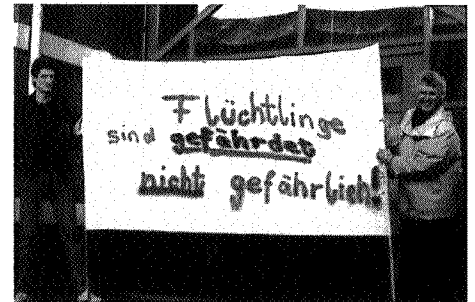 Flüchtlinge
sind gefährdet
nicht gefährlich!